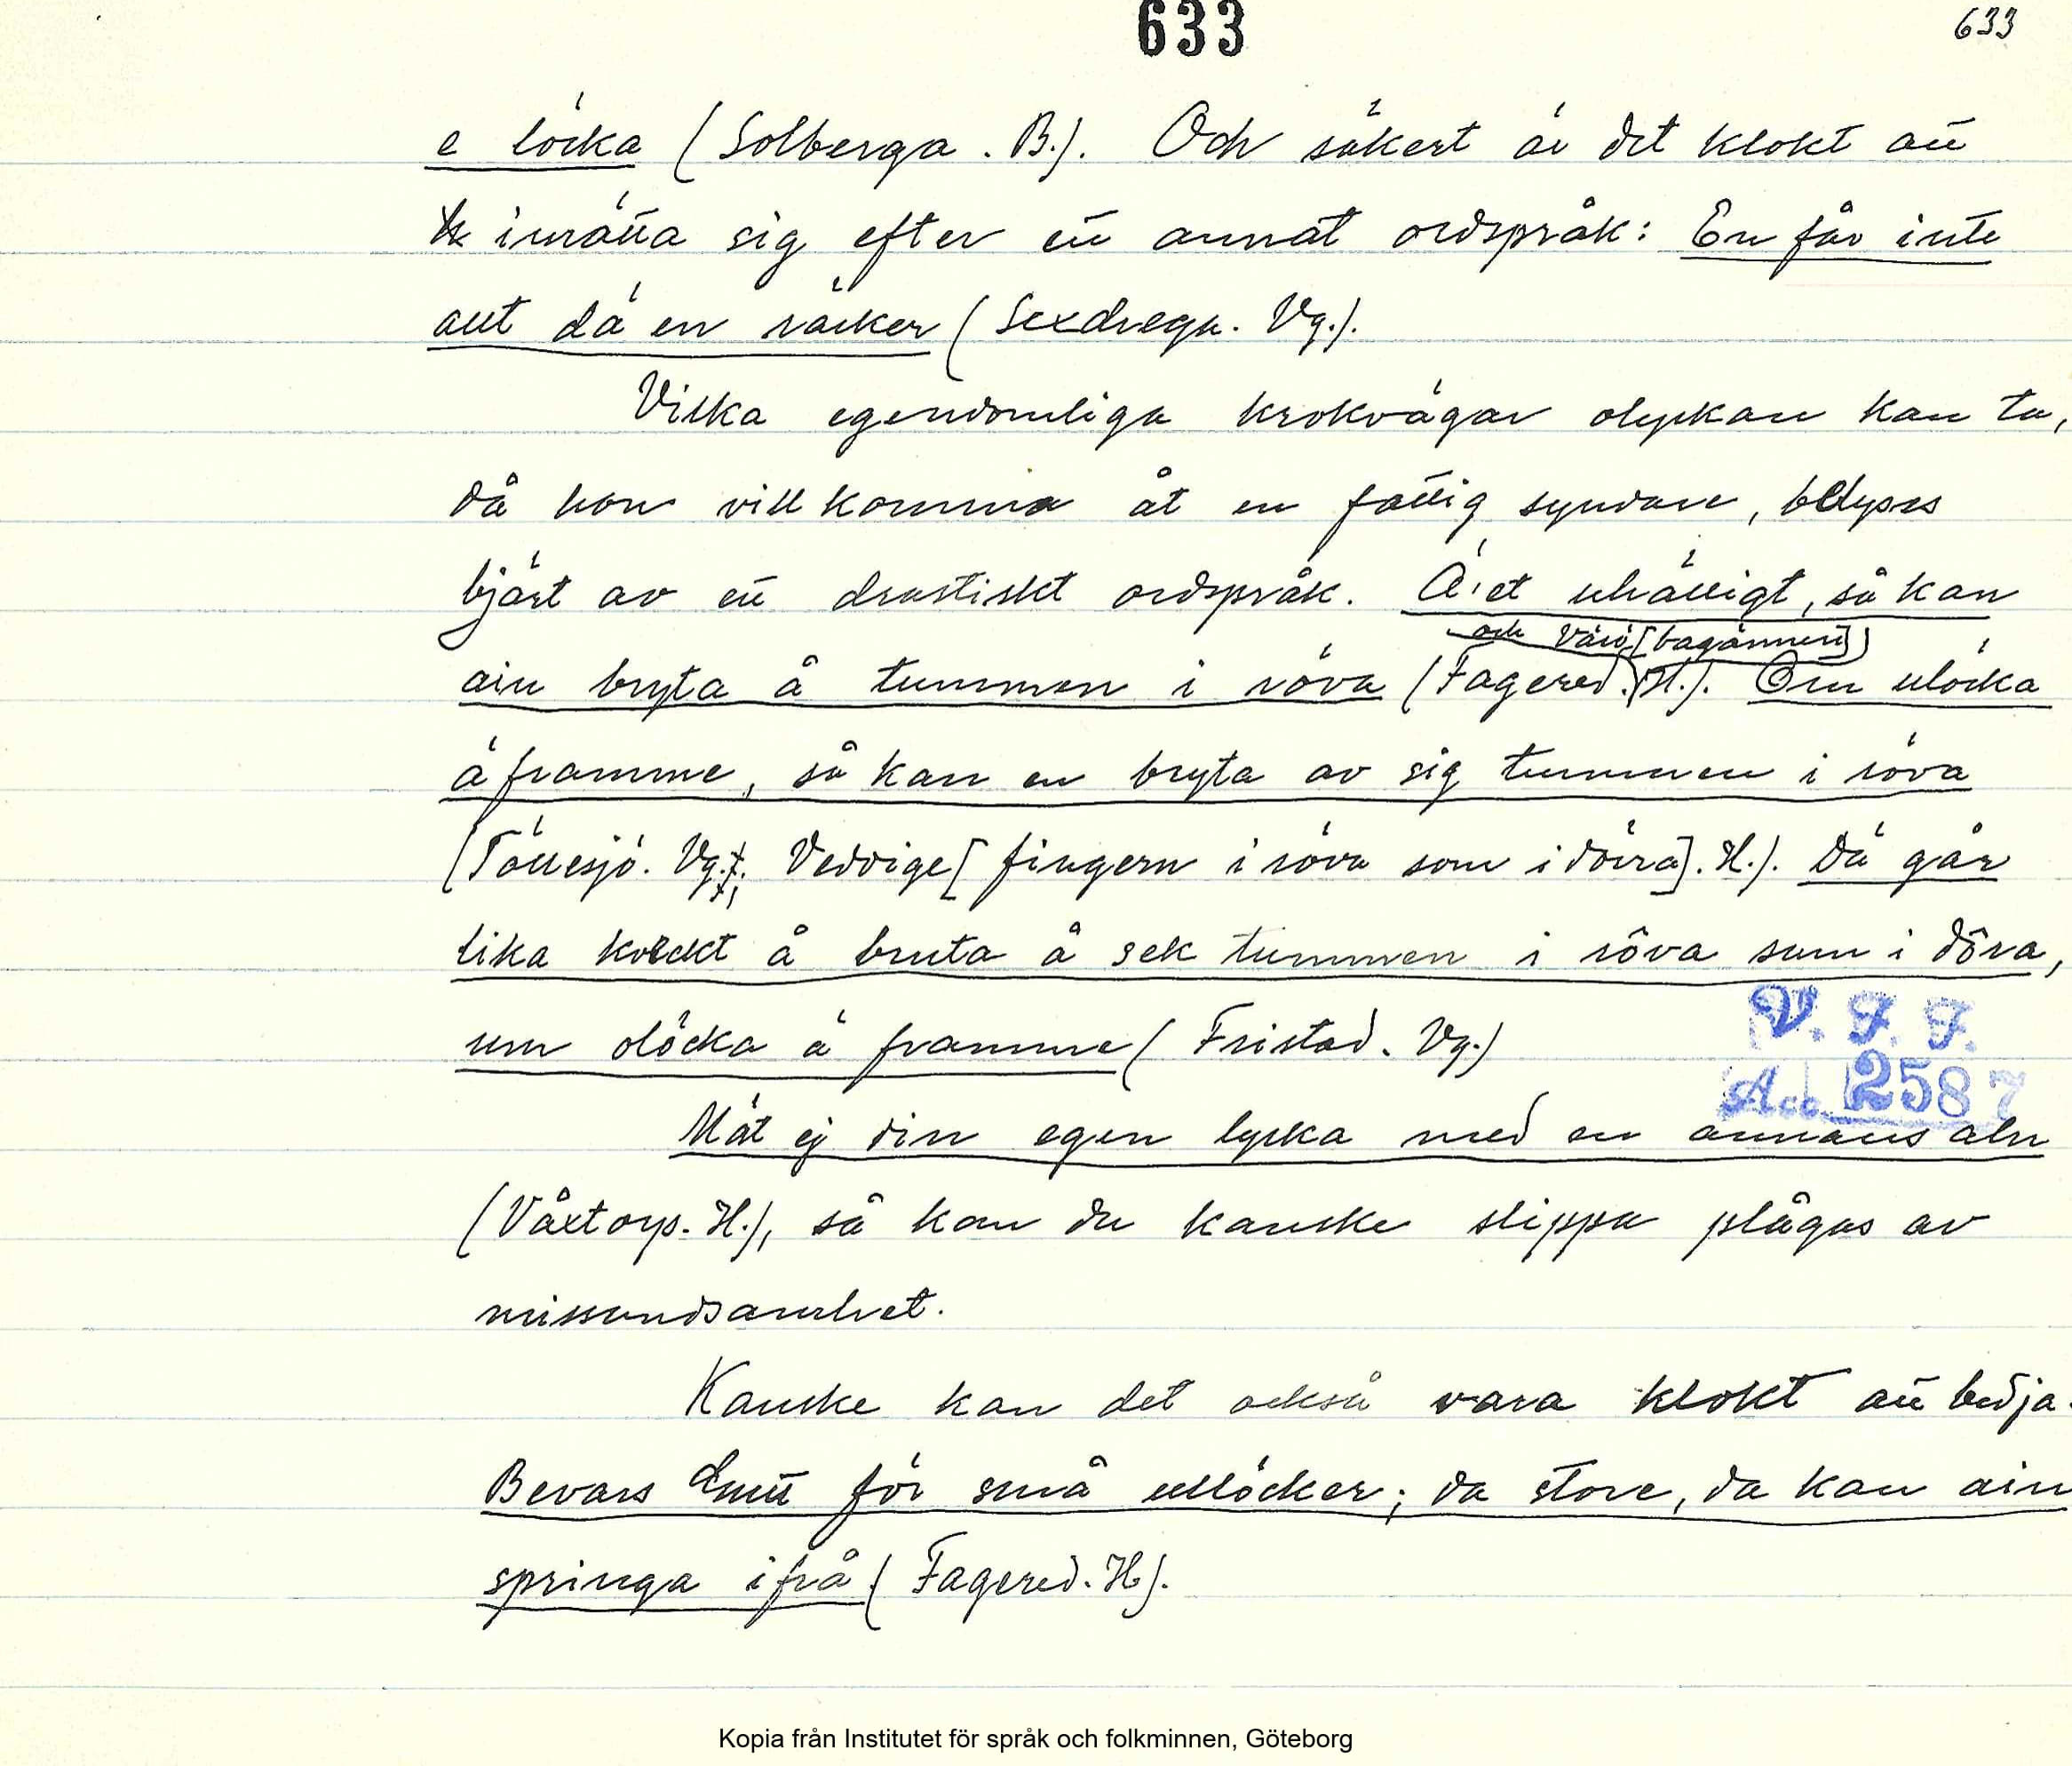 633
633
e löcka (Solberga. B.). Och säkert är det klokt att
inrätta sig efter ett annat ordspråk: En får inte
allt dä en räcker (Sexdrega. Vg.).
Vilka egendomliga krokvägar olyckan kan ta,
då hon vill komma åt en fattig syndare, belyses
bjärt av ett drastiskt ordspråk. Ä et uhälligt, så kan
och Värö [bagännen])
ain bryta å tummen i röva (Fagered. H.). Om ulöcka
ä framme, så kan en bryta av sig tummen i röva
(Töllesjö. Vg.; Veddige [fingern i röva som i dörra]. H.). Dä går
lika kvickt å bruta å sek tummen i rôva sum i dôra,
um olöcka ä framme (Fristad. Vg.)
V. F. F.
Acc. 2587
Mät ej din egen lycka med en annans aln
(Våxtorp. H.), så kan du kanske slippa plågas av
missundsamhet.
Kanske kan det också vara klokt att bedja.
Bevars för små ullöcker; da store, da kan ain
springa ifrå (Fagered. H).
Kopia från Institutet för språk och folkminnen, Göteborg